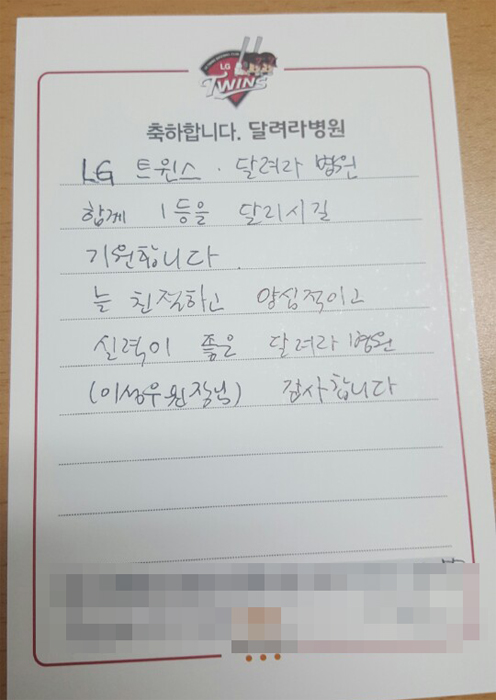 LG
TWINS
축하합니다. 달려라병원
LG 트윈스 · 달려라 병원
함께 1등을 달리시길
기원합니다.
늘 친절하고 양심적이고
실력이 좋은 달려라 병원
(이성우 원장님) 감사합니다